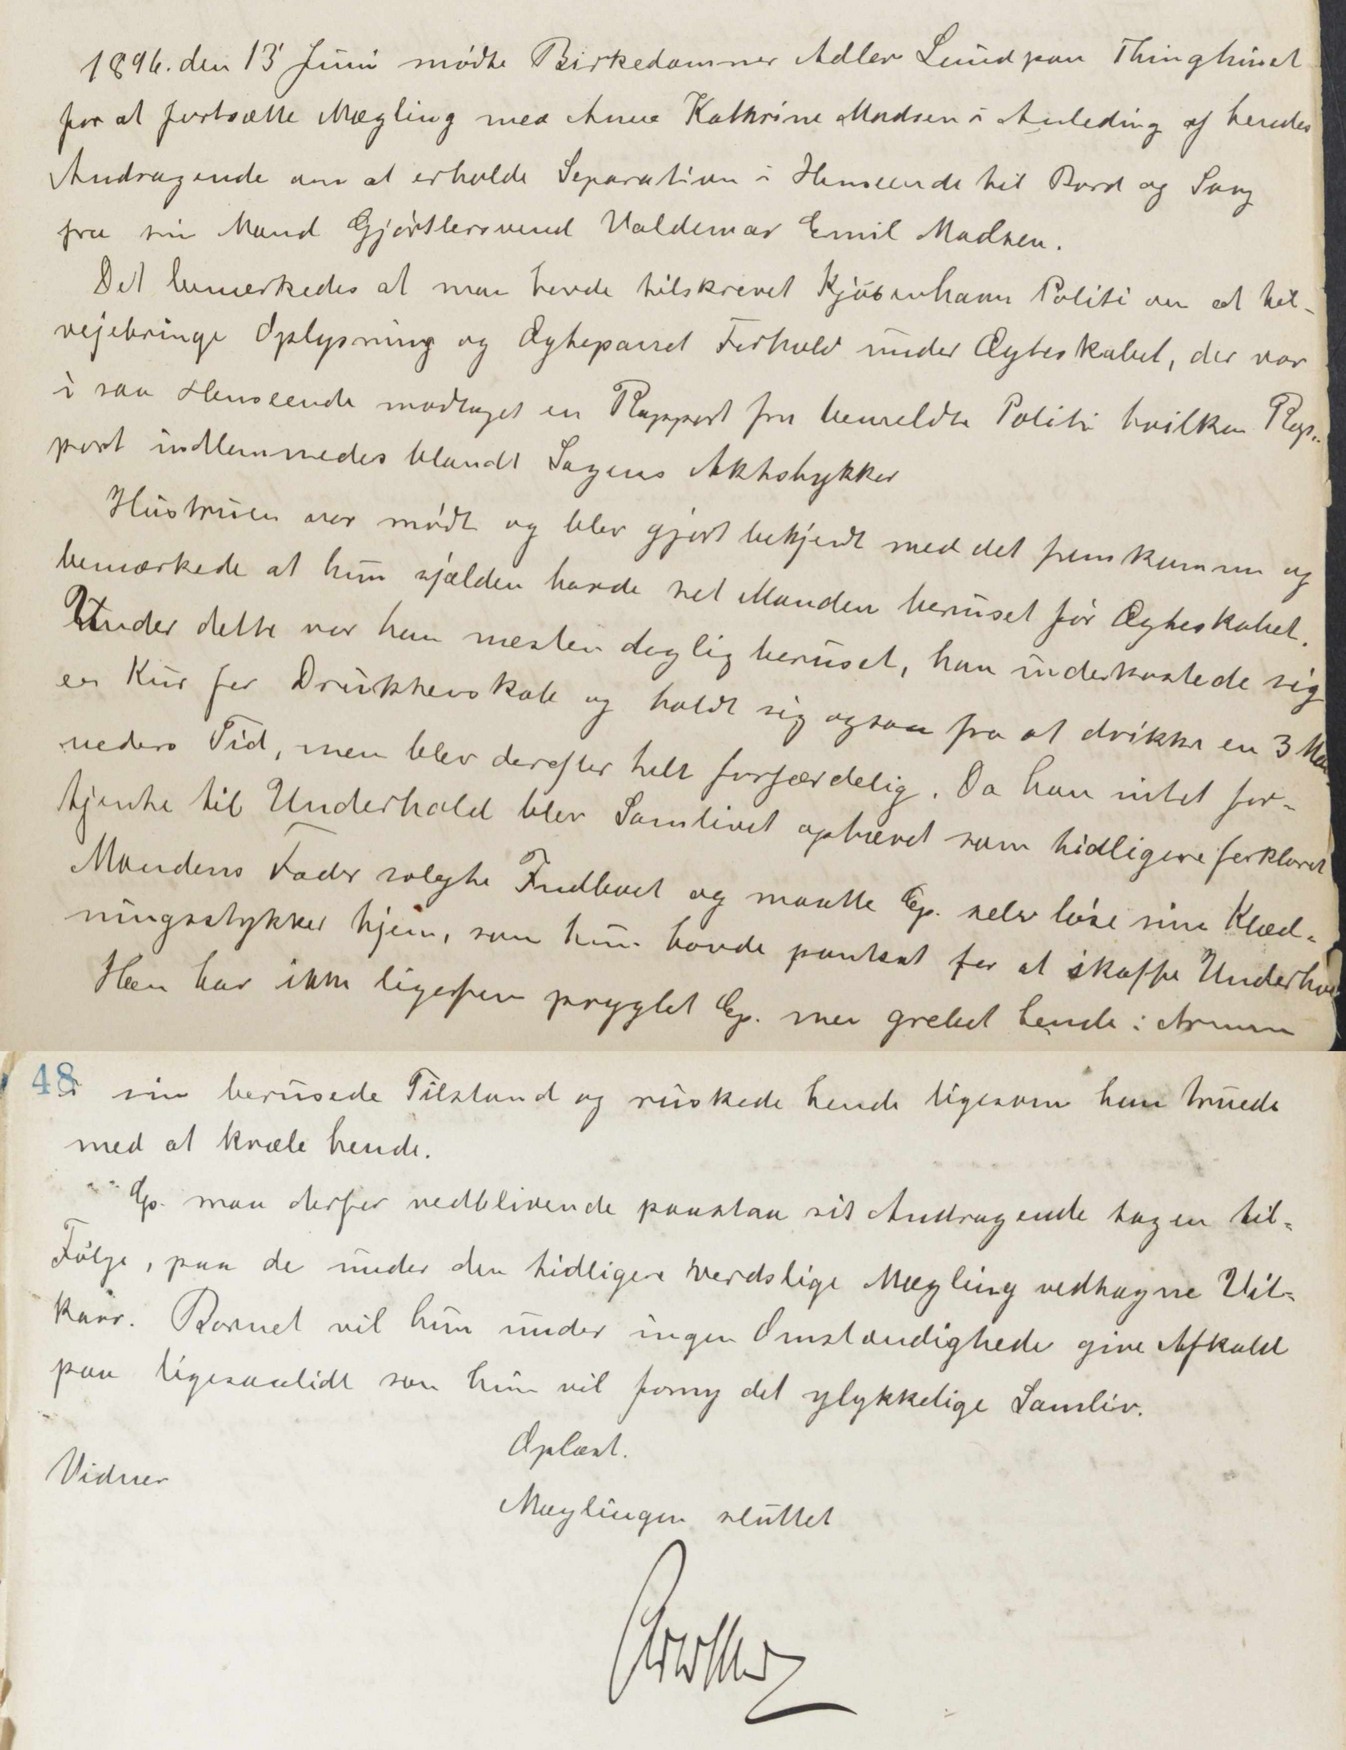 1896. den 13 Juni mødte Birkedommer Adler Lund paa Thinghuset
for at fortsætte Mægling med Anne Kathrine Madsen i Anleding af hendes
Andragende om at erholde Separation i Henseende til Bord og Seng
fra sin Mand Gjørtlersvend Valdemar Emil Madsen.
Det bemærkedes at man havde tilskrevet Kjøbenhavn Politi om at til-
vejebringe Oplysning og Ægteparret Forhold under Ægteskabet, der var
i saa Henseende modtaget en Rapport fra bemeldte Politi hvilken Rap-
port indlemmedes blandt Sagens Aktstykker
Hustruen var mødt og blev gjort bekjendt med det fremkomne og
bemærkede at hun sjælden havde set Manden beruset før Ægteskabet.
Under dette var han næsten daglig beruset, han underkastede sig
en Kur for Drukkenskab og holdt sig ogsaa fra at drikke en 3 Maa
neders Tid, men blev derefter helt forfærdelig. Da han intet for-
tjente til Underhold blev Samlivet ophævet som tidligere forklaret
Mandens Fader solgte Indboet og maatte Cp. selv løse sine Klæd-
ningsstykker hjem, som hun havde pantsat for at skaffe Underhol
Han har ikke ligefrem pryglet Cp. men grebet hende i Armene
48 i sin berusede Tilstand og ruskede hende ligesom han truede
med at kvæle hende.
Cp. maa derfor vedblivende paastaa sit Andragende tagen til-
Følge, paa de under den tidligere verdslige Mægling vedtagne Vil-
kaar. Barnet vil hun under ingen Omstændigheder give Afkald
paa ligesaalidt som hun vil forny det ulykkelige Samliv.
Oplæst.
Vidner
Mæglingen sluttet